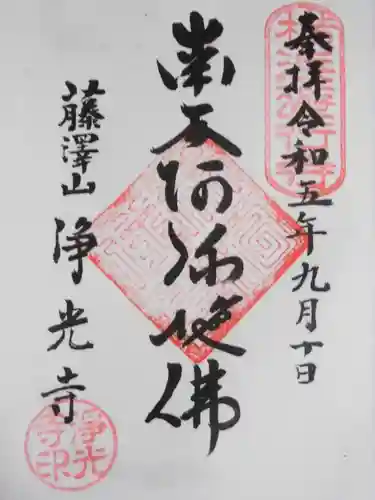 奉拝 令和五年九月十日
南无阿弥陀佛
藤澤山 浄光寺
浄光寺印